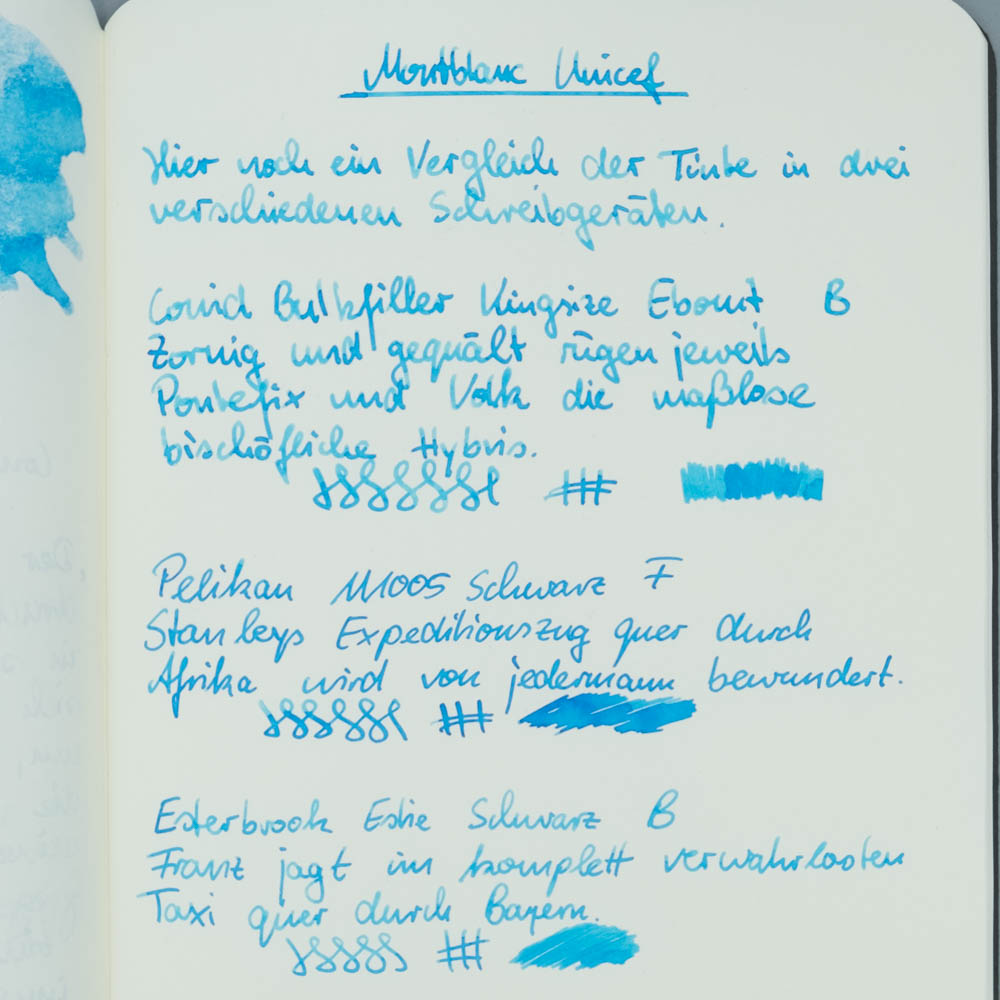 Montblanc Unicef
Hier noch ein Vergleich der Tinte in drei
verschiedenen Schreibgeräten.
Conid Bulkfiller Kingsize Ebonit B
Zornig und gequält rügen jeweils
Pontefix und Volk die maßlose
bischöfliche Hybris.
Pelikan M1005 Schwarz F
Stanleys Expeditionszug quer durch
Afrika wird von jedermann bewundert.
Esterbrook Estie Schwarz B
Franz jagt im komplett verwahrlosten
Taxi quer durch Bayern.